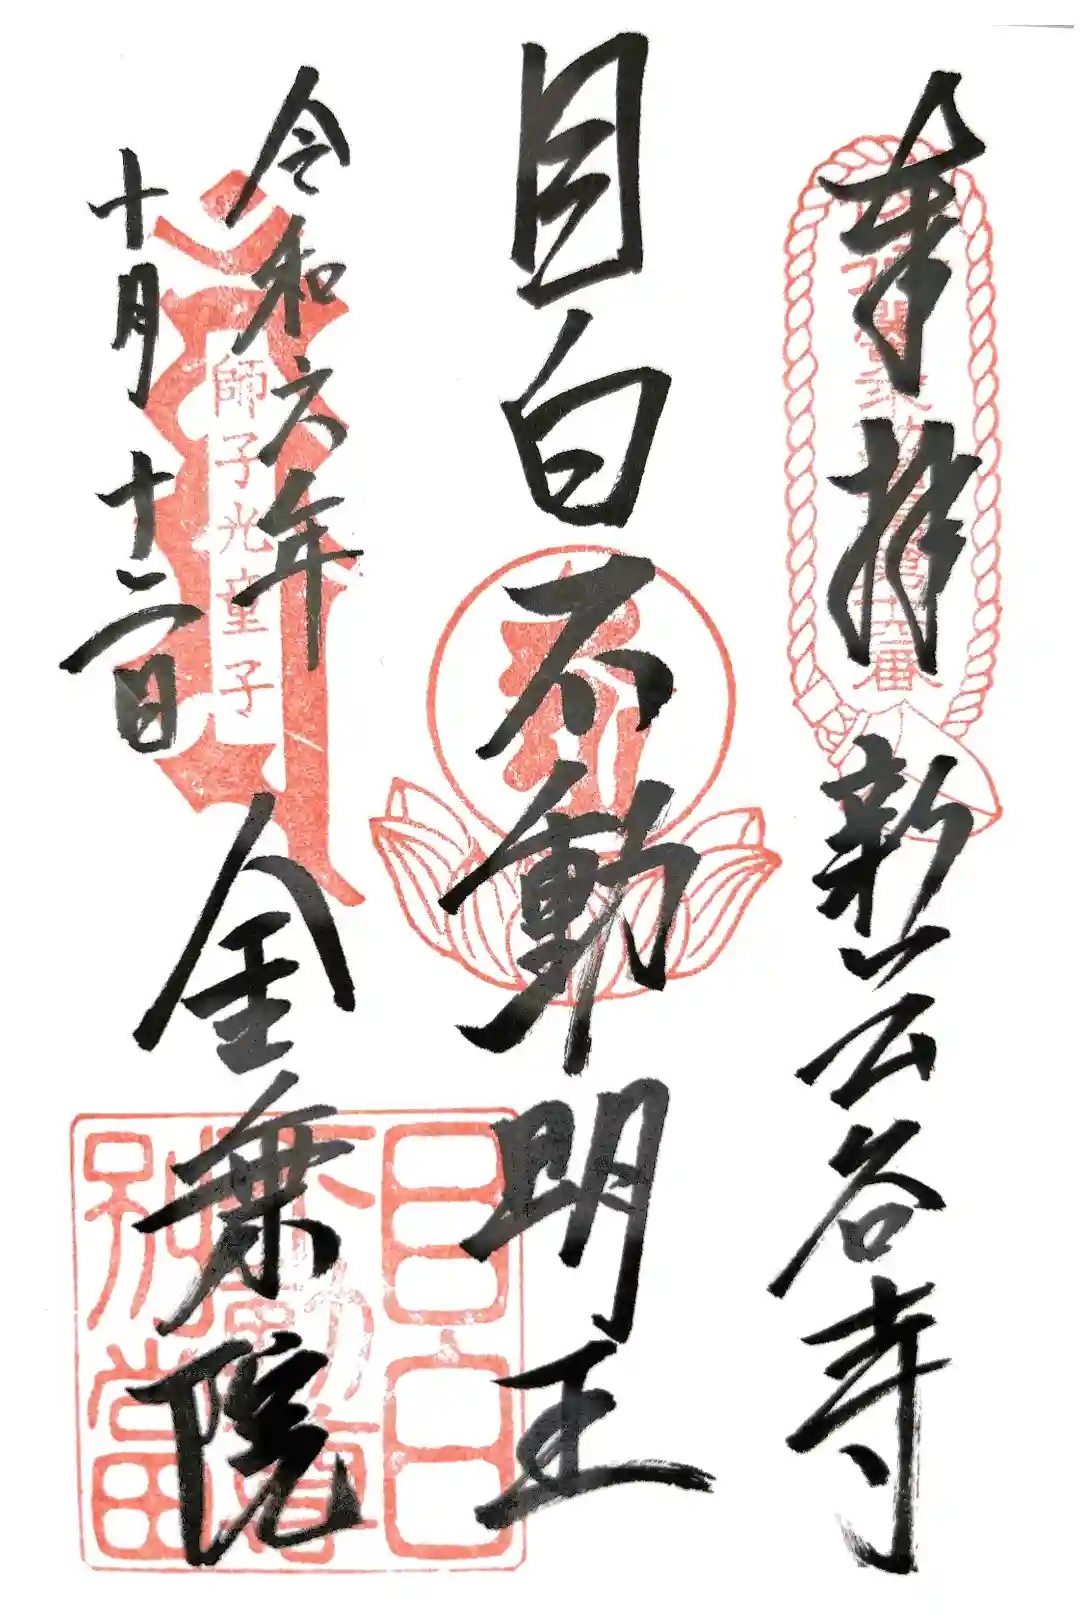 奉拝 新長谷寺
目白不動明王
金乗院
令和六年
十月十二日
師子光童子
目白
不動尊
別当